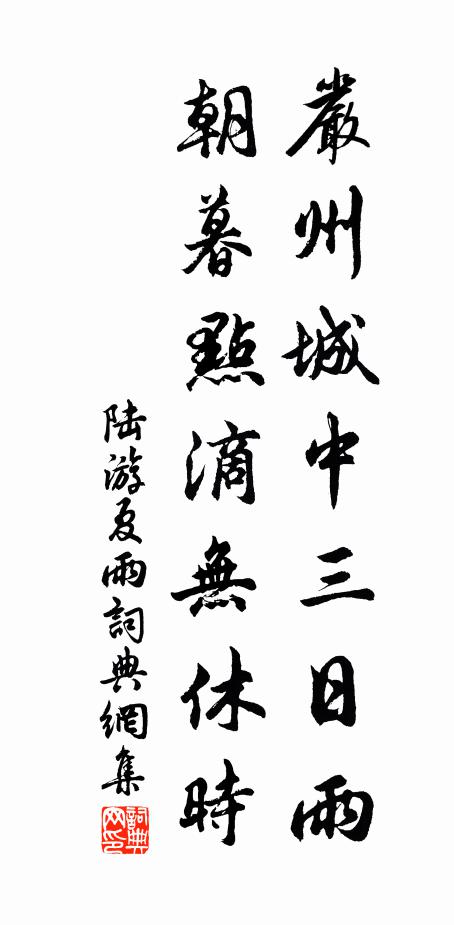 嚴州城中三日雨
朝暮點滴無休時
陆游夏雨詞典網集
詞典網印